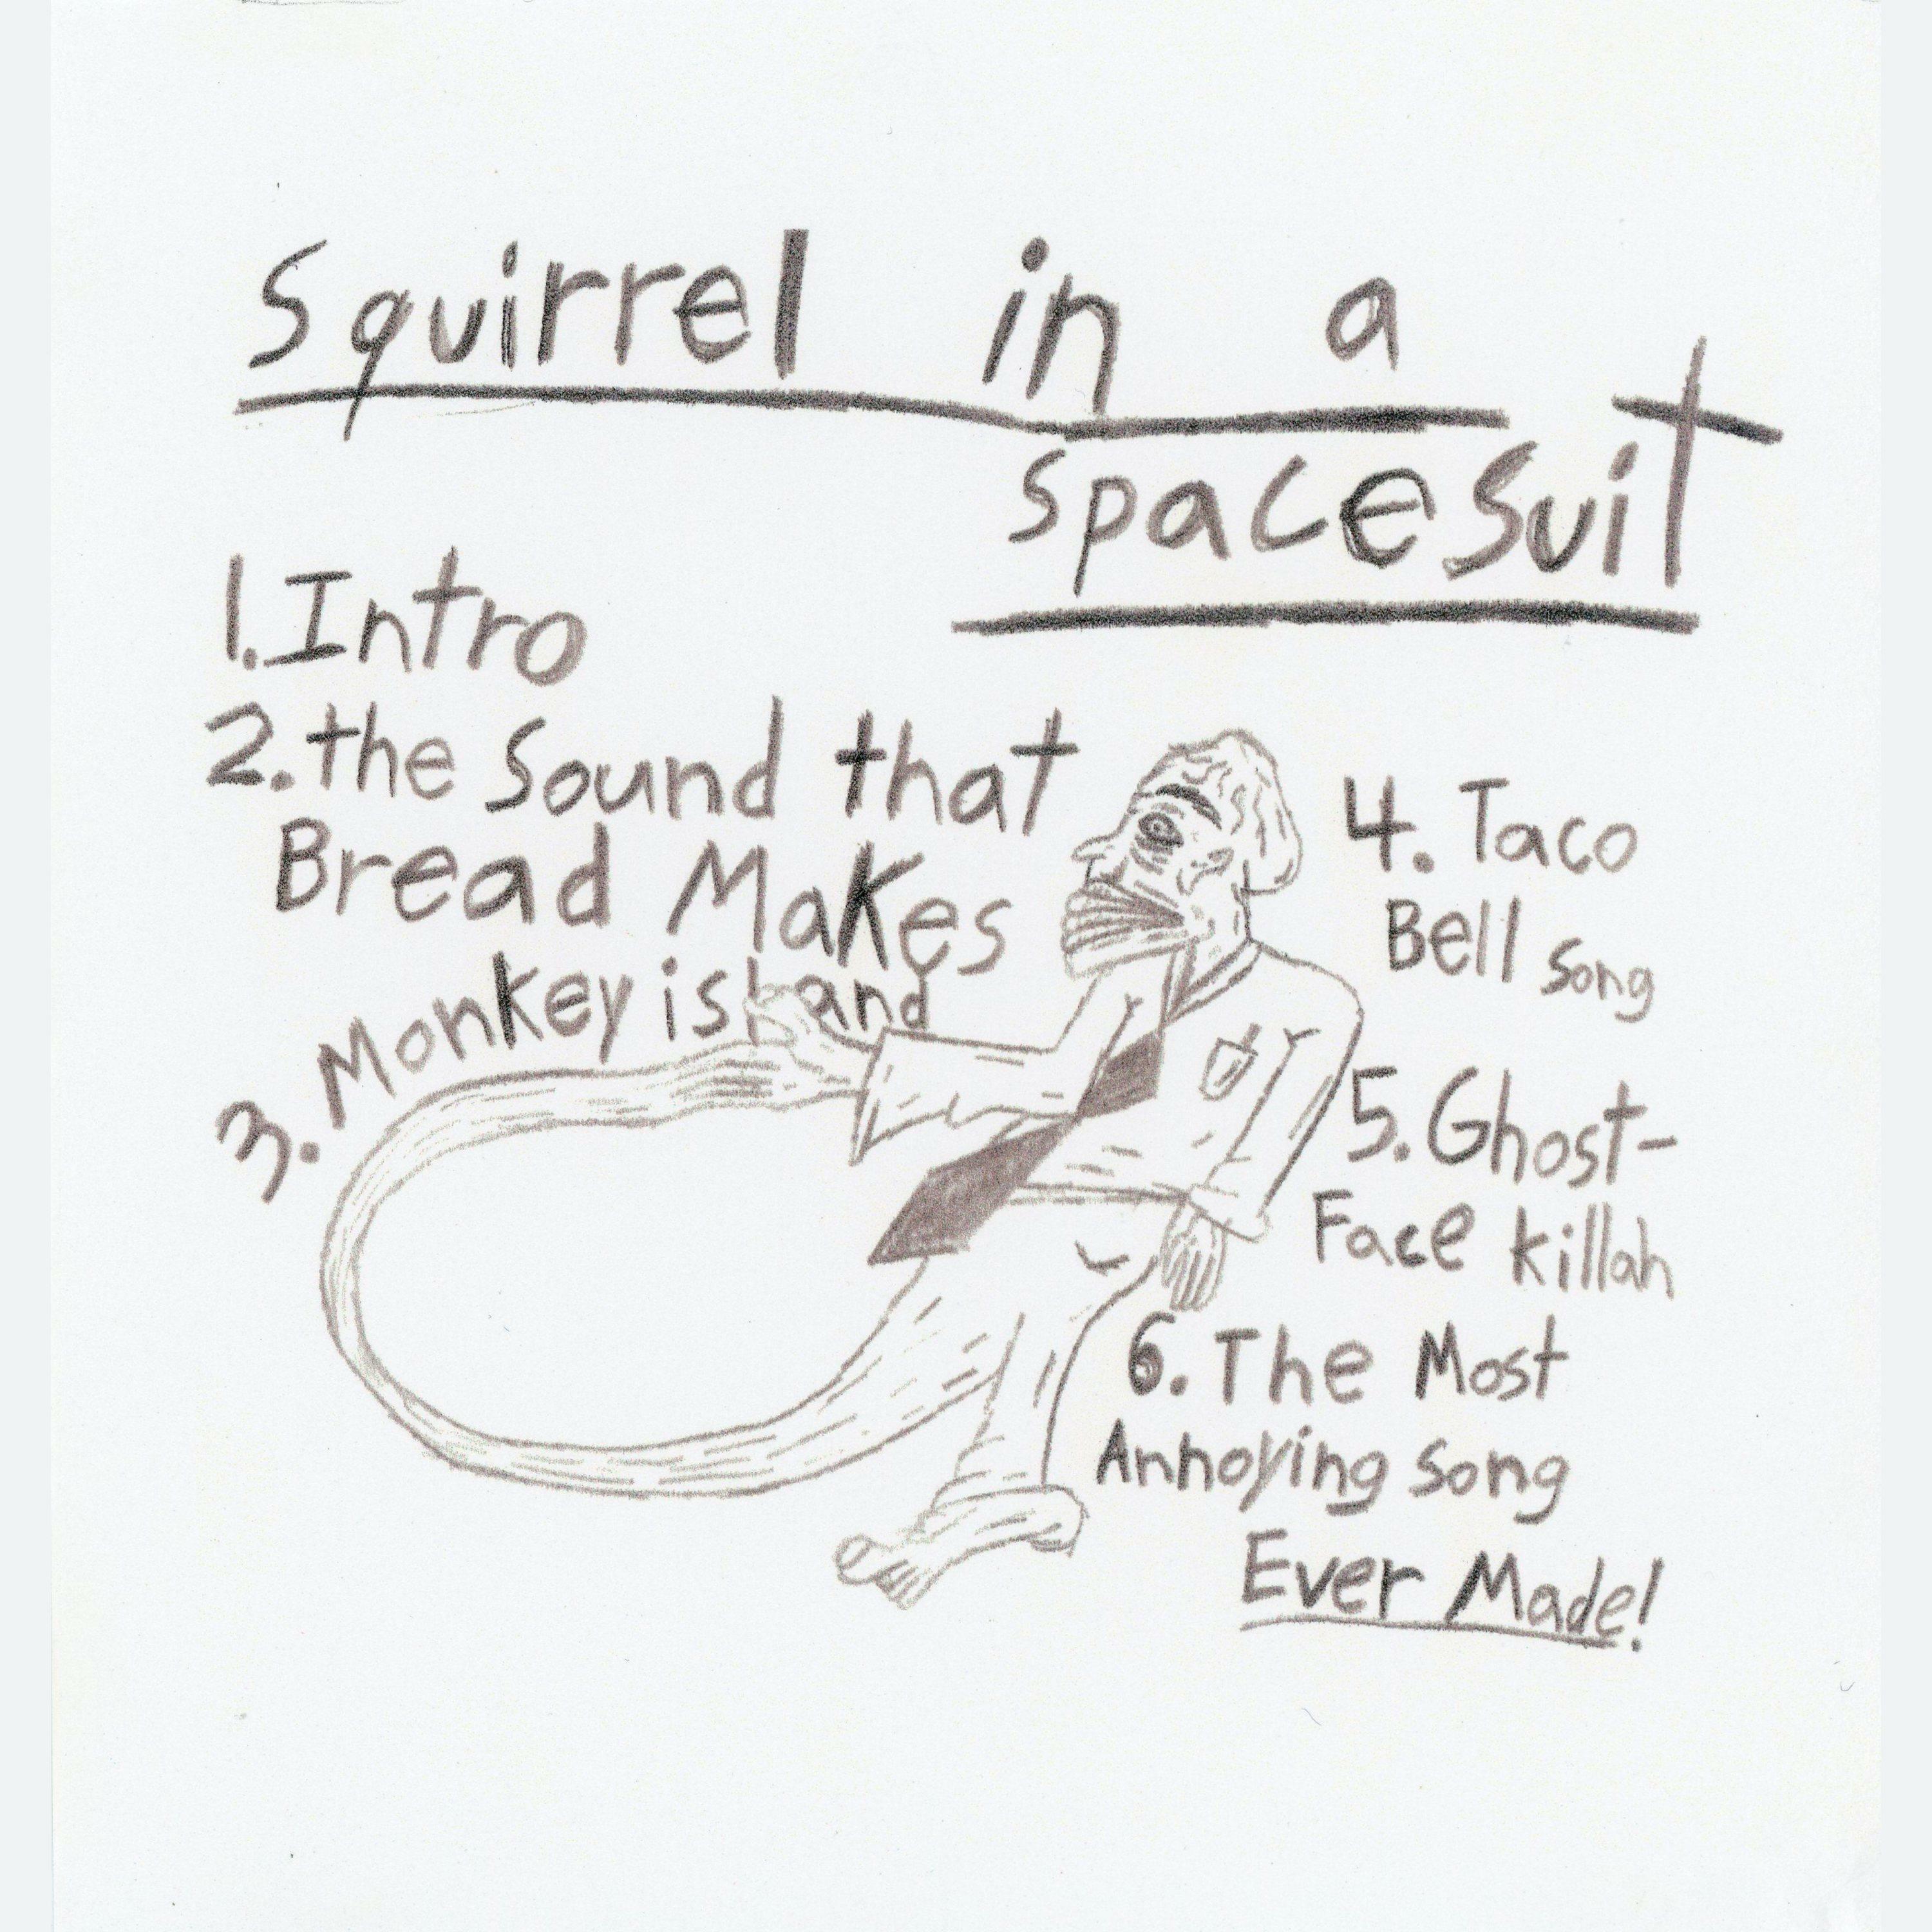 Squirrel in a
spacesuit
1. Intro
2. the Sound that
Bread Makes
3. Monkey island
4. Taco
Bell song
5. Ghost-
Face killah
6. The Most
Annoying song
Ever Made!